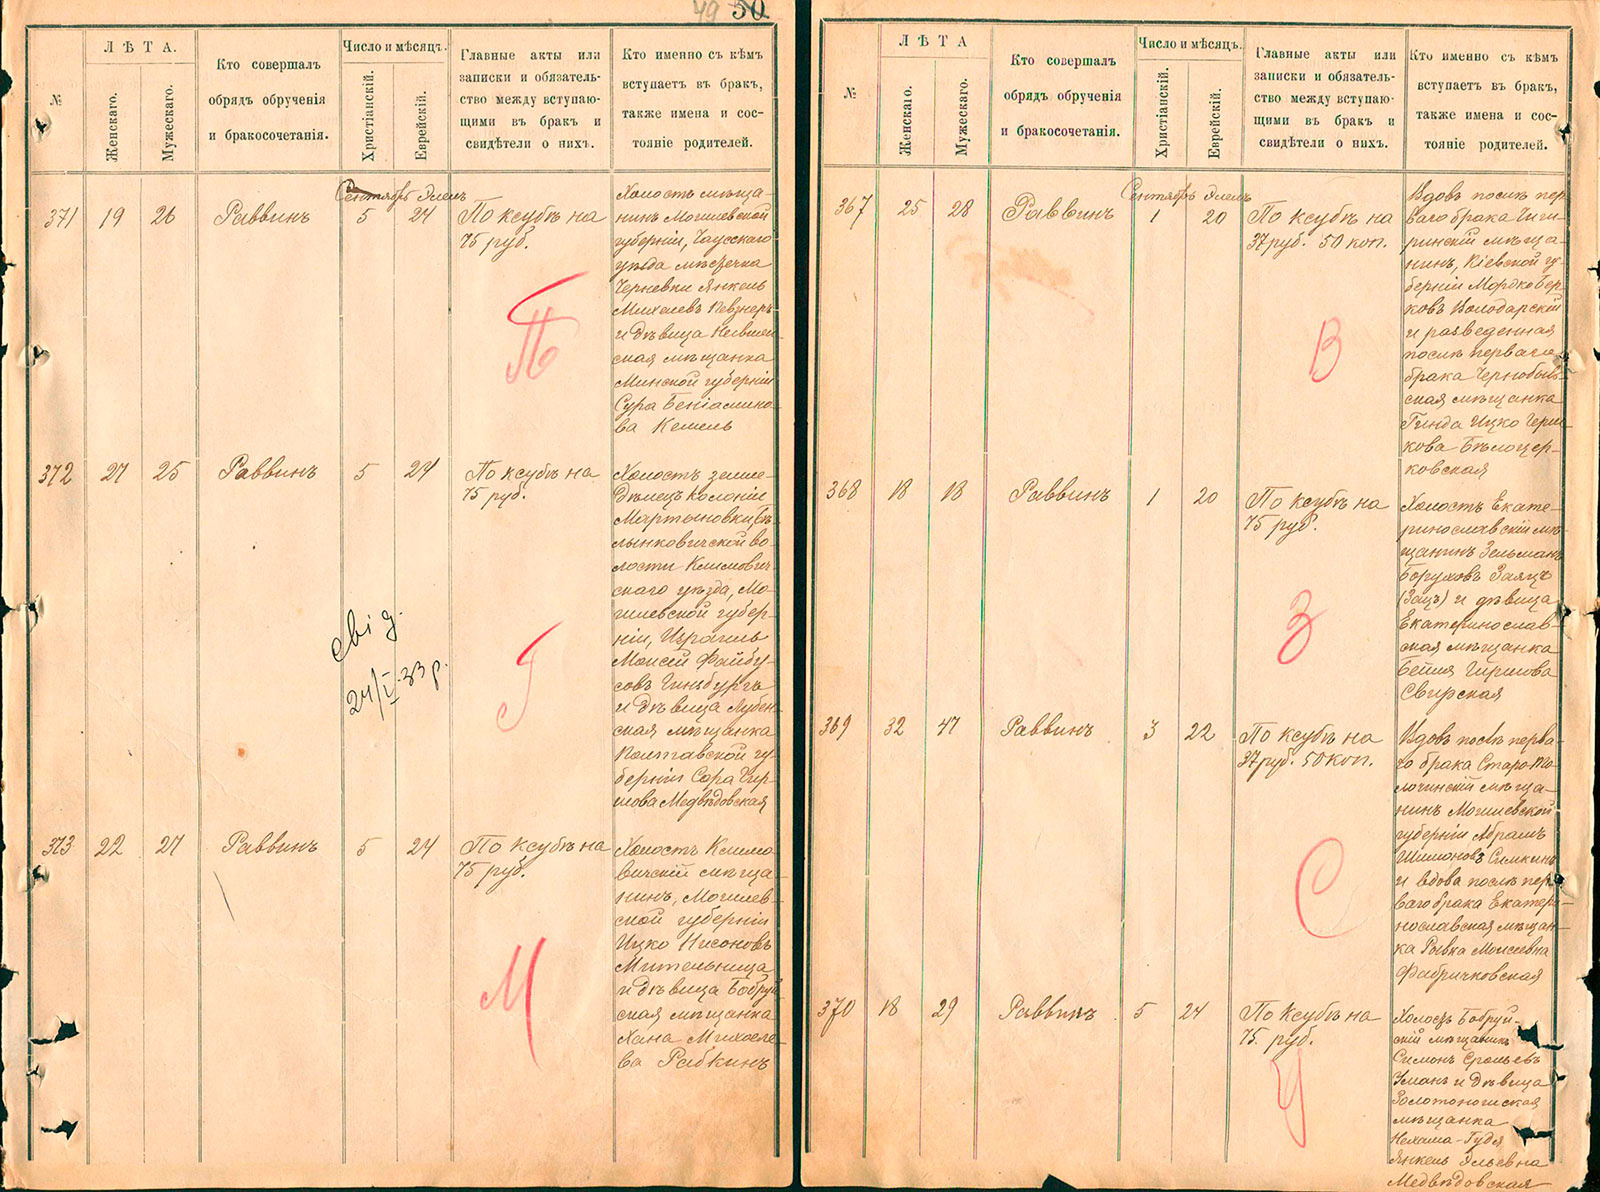 49 50
№
ЛѢТА.
Женскаго.
Мужескаго.
Кто совершалъ
обрядъ обрученія
и бракосочетанія.
Число и мѣсяцъ.
Христіанскій.
Еврейскій.
Главные акты или
записки и обязатель-
ство между вступаю-
щими въ бракъ и
свидѣтели о нихъ.
Кто именно съ кѣмъ
вступаетъ въ бракъ,
также имена и сос-
тояніе родителей.
Сентябрь Элелъ
371 19 26 Раввинъ 5 24
По ксубѣ на
75 руб.
Холостъ мѣща-
нинъ Могилевской
губерніи, Чаусскаго
уѣзда мѣстечка
Черневки Янкель
Михелевъ Певзнеръ
и дѣвица
ская мѣщанка
Минской губерніи
Сура Беніамино-
ва
П
372 27 25 Раввинъ 5 24
По ксубѣ на
75 руб.
Холостъ земле-
дѣлецъ колоніи
Мартыновки, Бѣ-
лынковичской во-
лости Климович-
скаго уѣзда, Мо-
гилевской губер-
ніи, Израиль
Моисей Файбу-
совъ Гинзбургъ
и дѣвица Лубен-
ская мѣщанка
Полтавской гу-
берніи Сора Гир-
шова Медвѣдовская
Г
свід.
24/I-33 р.
373 22 27 Раввинъ 5 24
По ксубѣ на
75 руб.
Холостъ Климо-
вичскій мѣща-
нинъ, Могилев-
ской губерніи
Ицко Нисоновъ
Мительница
и дѣвица Бобруй-
ская мѣщанка
Хана Михоеле-
ва Рабкинъ
М
№
ЛѢТА
Женскаго.
Мужескаго.
Кто совершалъ
обрядъ обрученія
и бракосочетанія.
Число и мѣсяцъ.
Христіанскій.
Еврейскій.
Главные акты или
записки и обязатель-
ство между вступаю-
щими въ бракъ и
свидѣтели о нихъ.
Кто именно съ кѣмъ
вступаетъ въ бракъ,
также имена и сос-
тояніе родителей.
Сентябрь Элелъ
367 25 28 Раввинъ 1 20
По ксубѣ на
37 руб. 50 коп.
Вдовъ послѣ пер-
ваго брака Чиги-
ринскій мѣща-
нинъ, Кіевской гу-
берніи Мордко Бер-
ковъ Володарскій
и разведенная
послѣ перваго
брака Чернобыль-
ская мѣщанка
Гинда Ицко Герш-
кова Бѣлоцер-
ковская
В
368 18 18 Раввинъ 1 20
По ксубѣ на
75 руб.
Холостъ Екате-
ринославскій мѣ-
щанинъ Зельманъ
Боруховъ Заяцъ
(Зацъ) и дѣвица
Екатеринослав-
ская мѣщанка
Бейля Гиршова
Свирская
З
369 32 47 Раввинъ 3 22
По ксубѣ на
37 руб. 50 коп.
Вдовъ послѣ перва-
го брака Старо-То-
лочинскій мѣща-
нинъ Могилевской
губерніи Абрамъ
Шимоновъ Симкинъ
и вдова послѣ пер-
ваго брака Екатери-
нославская мѣщан-
ка Рывка Моисеевна
Фабричковская
С
370 18 29 Раввинъ 5 24
По ксубѣ на
75. руб.
Холостъ Бобруй-
скій мѣщанинъ
Симонъ Срольевъ
Уманъ и дѣвица
Золотоношская
мѣщанка
Нехама-Гудя
Янкель Эльевна
Медвѣдовская
У